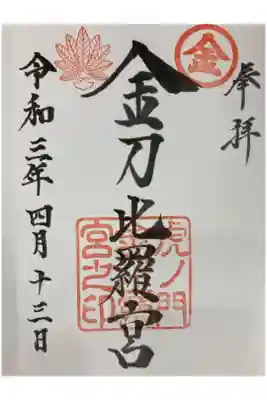 奉拝
金
金刀比羅宮
虎ノ門
宮之印
令和三年四月十三日